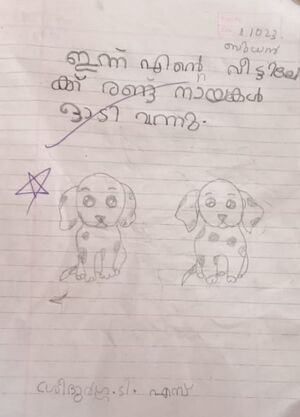 1.1023
ബുധൻ
ഇന്ന് എന്റെ വീട്ടിലേ
ക്ക് രണ്ട് നായകൾ
ഓടി വന്നു.
ടി. എസ്